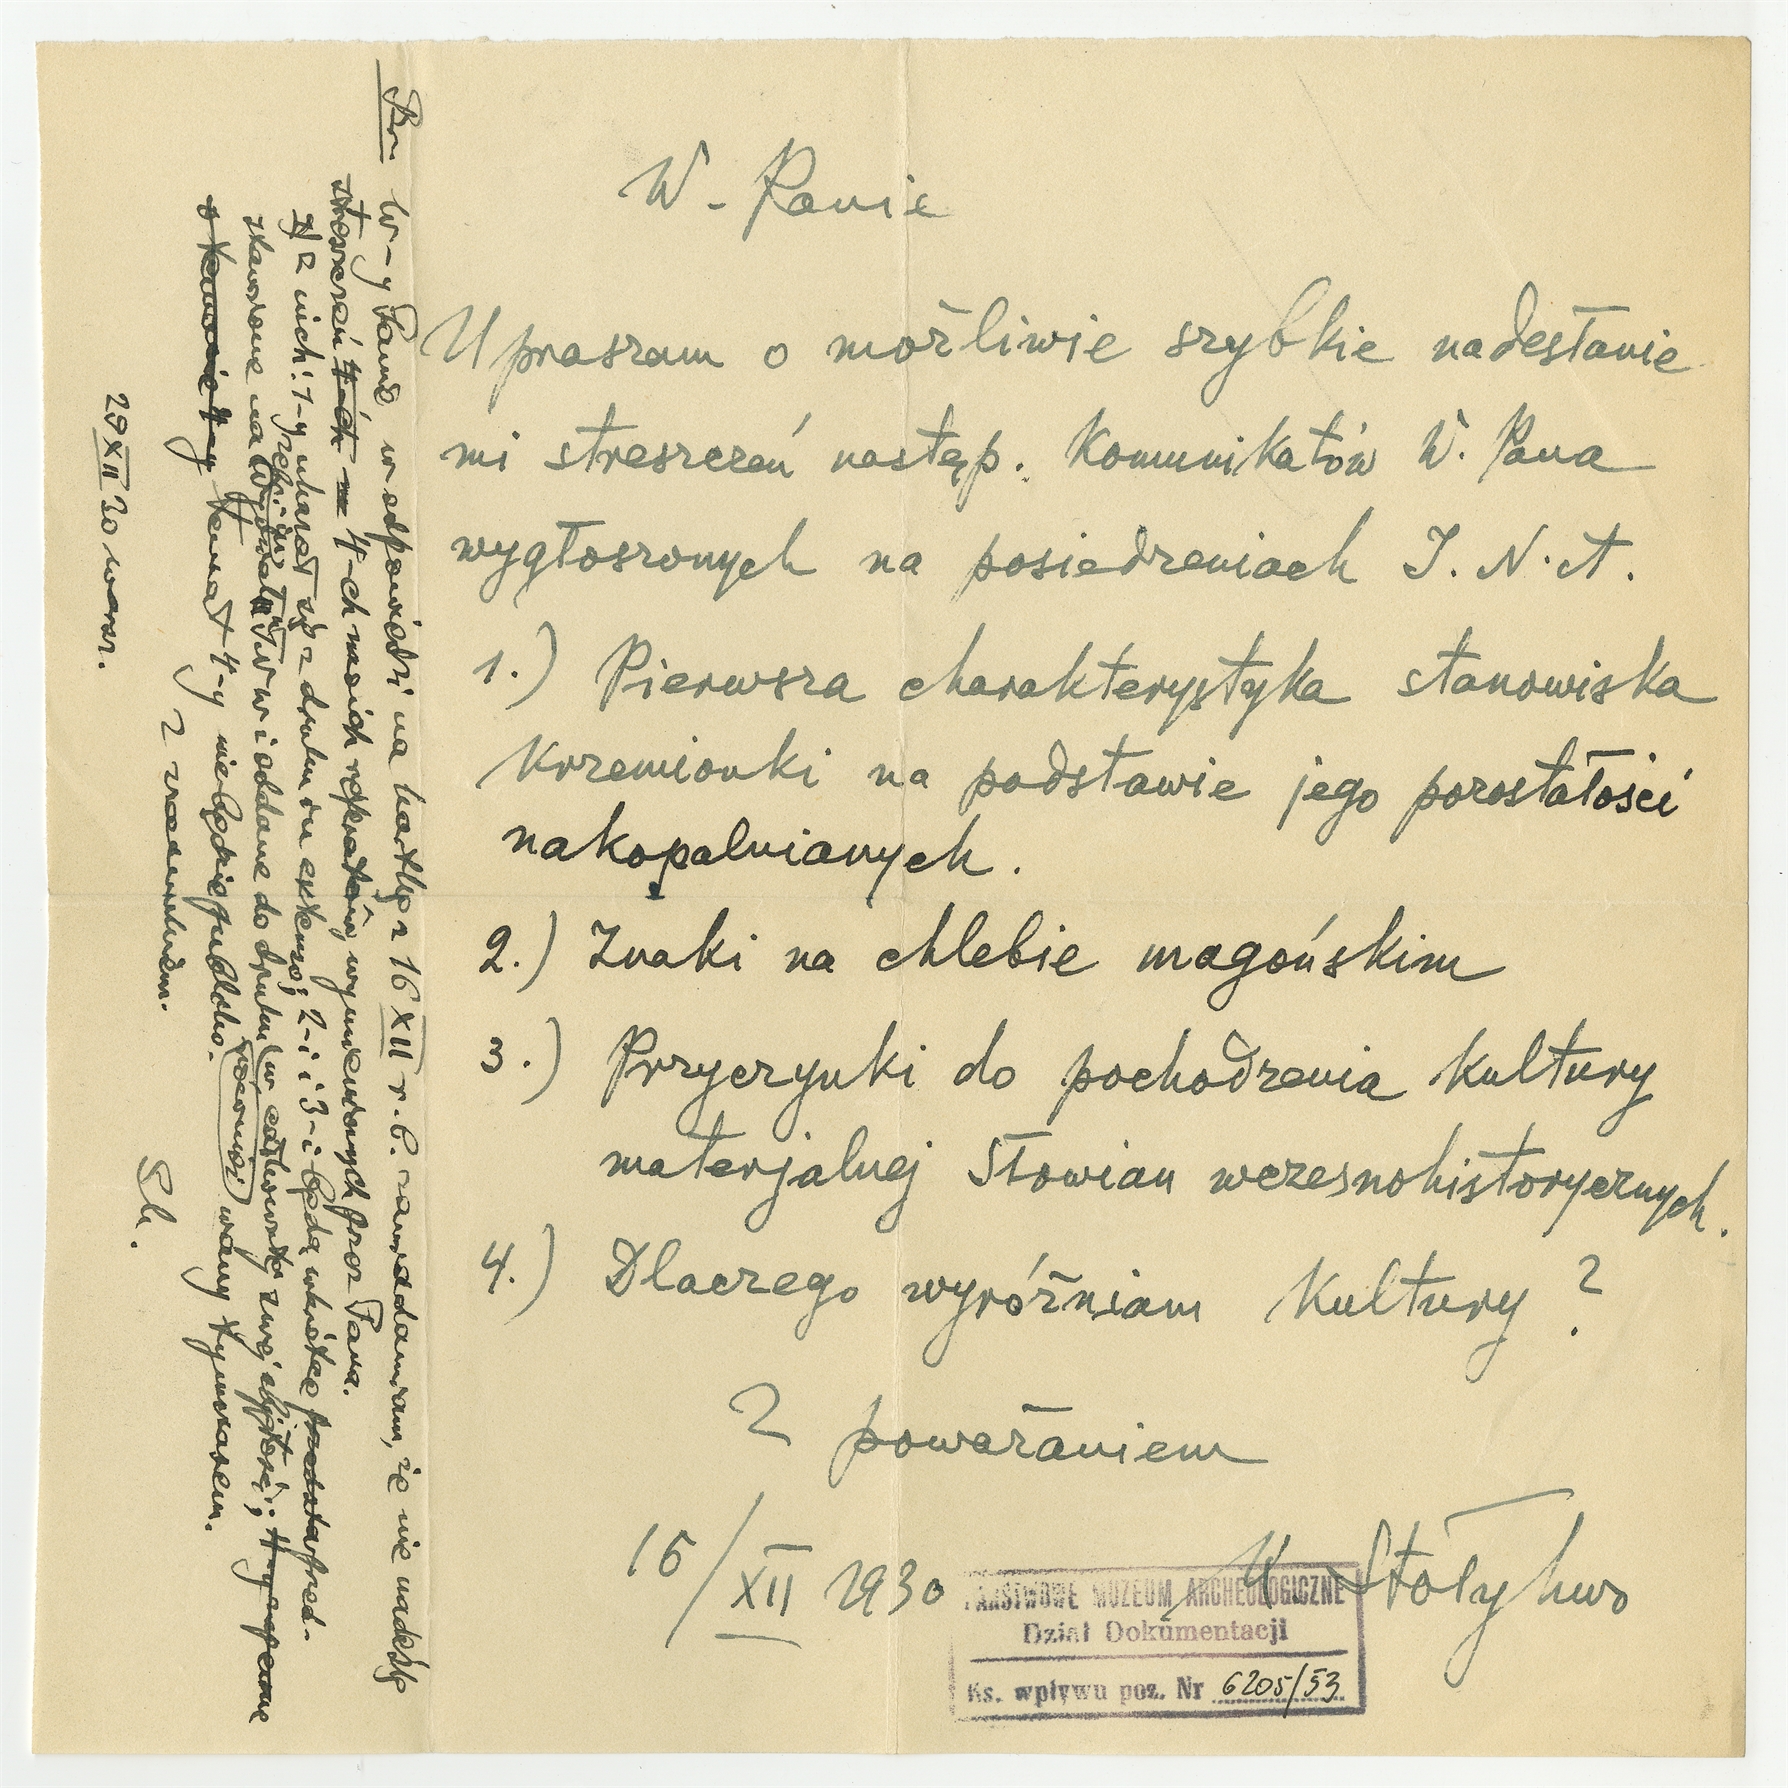 W. Panie
Upraszam o możliwie szybkie nadesłanie
mi streszczeń następ. Komunikatów W. Pana
wygłoszonych na posiedzeniach I. N. A.
1.) Pierwsza charakterystyka stanowiska
Krzemionki na podstawie jego pozostałości
nakopalnianych.
2.) Znaki na chlebie magońskim
3.) Przyczynki do pochodzenia kultury
materjalnej Słowian wczesnohistorycznych.
4.) Dlaczego wyróżniam kultury?
Z poważaniem
16/XII 1930 K Stołyhwo
PAŃSTWOWE MUZEUM ARCHEOLOGICZNE
Dział Dokumentacji
Ks. wpływu poz. Nr 6205/53
W-y Panie w odpowiedzi na kartkę z 16 XII r.b. zawiadamiam, że nie nadeślę
streszczeń 4-ch 4-ch moich referatów wymienionych przez Pana.
z nich: 1-y ukazał się z druku 2-i i 3-i będą wkrótce
i oddane do druku w swej objętości;
temat 4-y nie będzie wany tymczasem.
Z szacunkiem.
29 XII 30 Warsz.